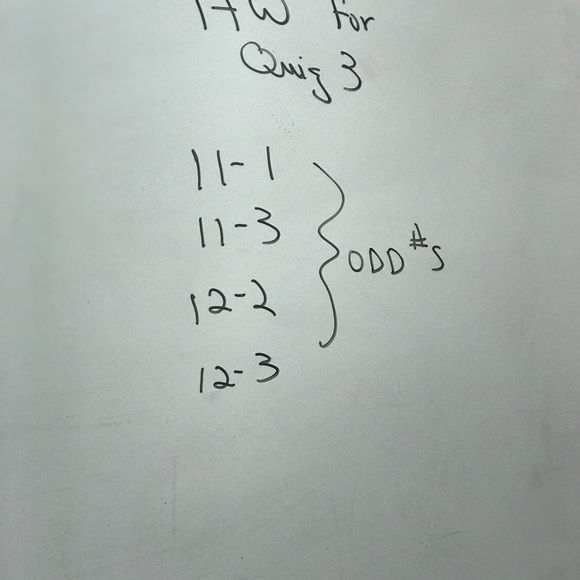 HW for
Quiz 3
11-1
11-3
12-2
12-3
ODD #s